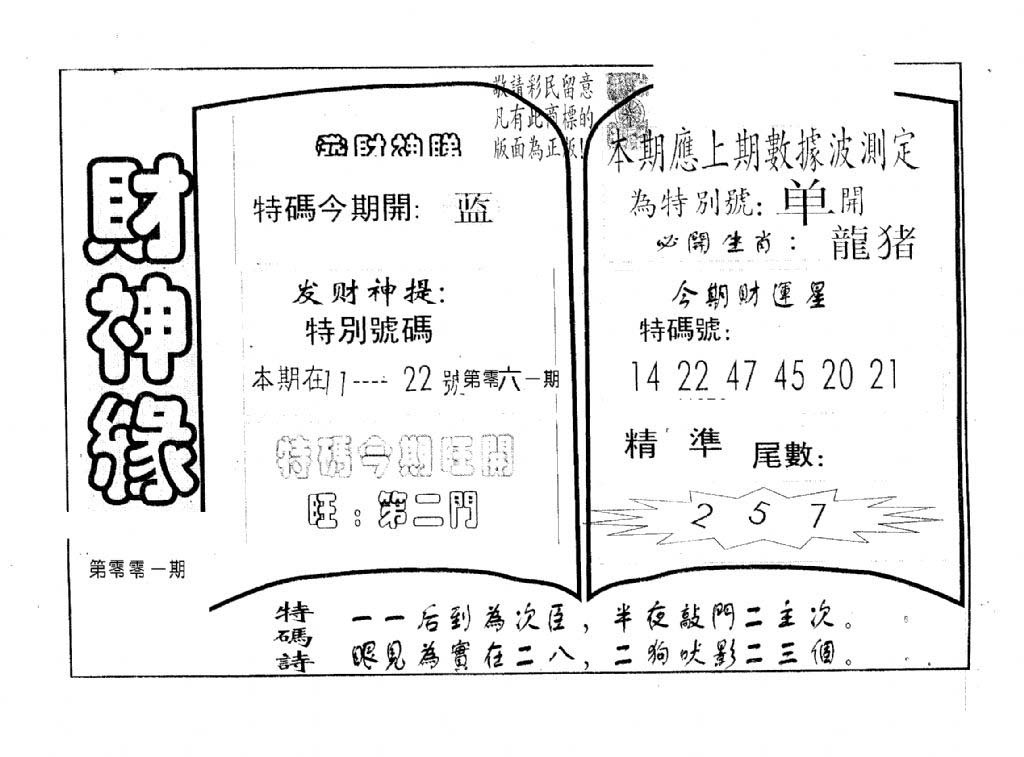 財神緣
第零零一期
敬請彩民留意
凡有此商標的
版面為正版!
特碼今期開: 蓝
发财神提:
特別號碼
本期在11----22號第零六一期
特碼今期旺開
旺:第二門
本期應上期數據波測定
為特別號: 单開
必開生肖: 龍猪
今期財運星
特碼號:
14 22 47 45 20 21
精準 尾數:
2 5 7
特碼詩
一一后到為次臣,半夜敲門二主次。
眼見為實在二八,二狗吠影二三個。